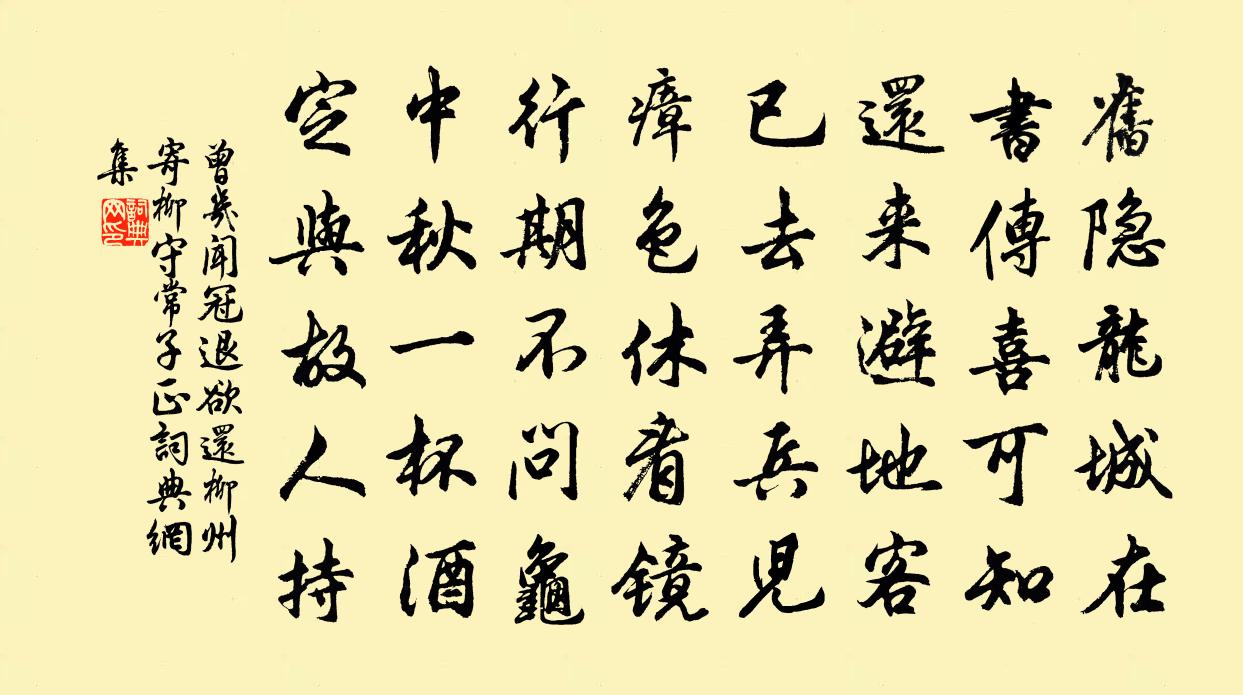 舊隐龍城在
書傳喜可知
還来避地客
已去弄兵兒
瘴色休看镜
行期不問龜
中秋一杯酒
定與故人持
曾幾闻冠退欲還柳州
寄柳守常子正詞典網
集
詞典网印